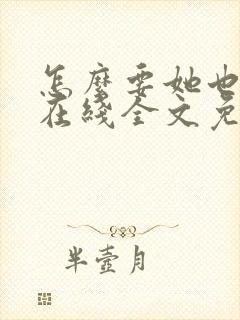 怎麼要她也
在綫全文免
半壺月